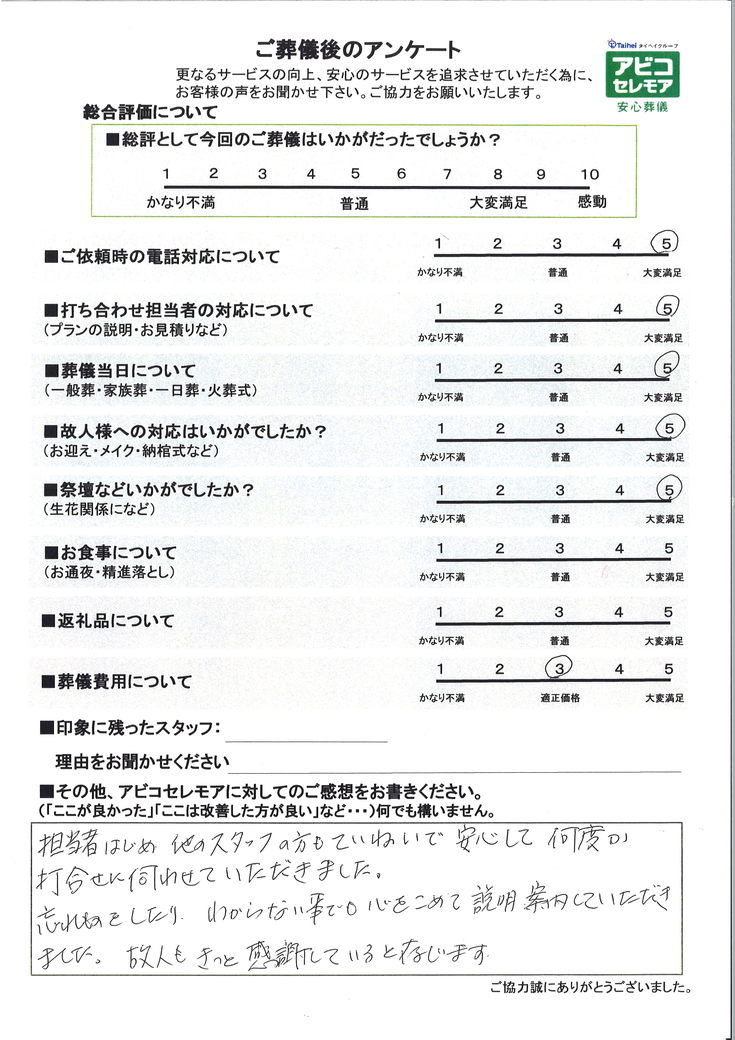 ご葬儀後のアンケート
Taihei タイヘイグループ
アビコ
セレモア
安心葬儀
更なるサービスの向上、安心のサービスを追求させていただく為に、
お客様の声をお聞かせ下さい。ご協力をお願いいたします。
総合評価について
■総評として今回のご葬儀はいかがだったでしょうか？
1 2 3 4 5 6 7 8 9 10
かなり不満 普通 大変満足 感動
■ご依頼時の電話対応について
1 2 3 4 5
かなり不満 普通 大変満足
■打ち合わせ担当者の対応について
(プランの説明・お見積りなど)
1 2 3 4 5
かなり不満 普通 大変満足
■葬儀当日について
(一般葬・家族葬・一日葬・火葬式)
1 2 3 4 5
かなり不満 普通 大変満足
■故人様への対応はいかがでしたか？
(お迎え・メイク・納棺式など)
1 2 3 4 5
かなり不満 普通 大変満足
■祭壇などいかがでしたか？
(生花関係になど)
1 2 3 4 5
かなり不満 普通 大変満足
■お食事について
(お通夜・精進落とし)
1 2 3 4 5
かなり不満 普通 大変満足
■返礼品について
1 2 3 4 5
かなり不満 普通 大変満足
■葬儀費用について
1 2 3 4 5
かなり不満 適正価格 大変満足
■印象に残ったスタッフ：
理由をお聞かせください
■その他、アビコセレモアに対してのご感想をお書きください。
(「ここが良かった」「ここは改善した方が良い」など・・・)何でも構いません。
担当者はじめ 他のスタッフの方もていねいで 安心して 何度か
打合せに伺わせていただきました。
忘れものをしたり、わからない事でも心をこめて説明案内していただき
ました。故人もきっと感謝していると存じます
ご協力誠にありがとうございました。